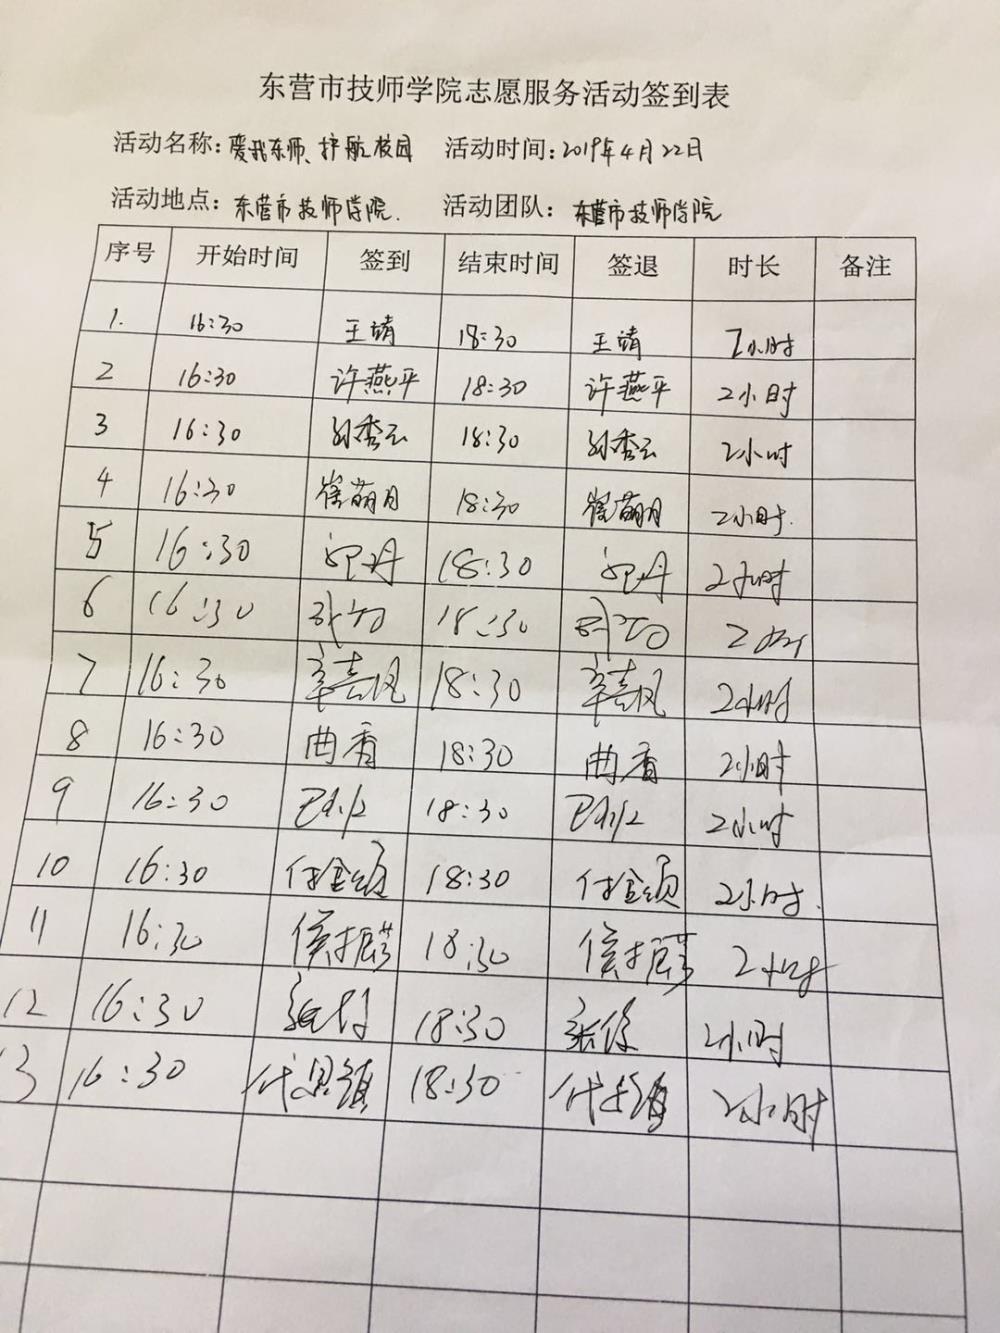 东营市技师学院志愿服务活动签到表
活动名称：爱我东师、护航校园 活动时间：2019年4月22日
活动地点：东营市技师学院. 活动团队：东营市技师学院
序号 开始时间 签到 结束时间 签退 时长 备注
1. 16:30 王靖 18:30 王靖 2小时
2 16:30 许燕平 18:30 许燕平 2小时
3 16:30 孙秀云 18:30 孙秀云 2小时
4 16:30 崔萌月 18:30 崔萌月 2小时.
5 16:30 18:30 2小时
6 16:30 18:30 2小时
7 16:30 辛吉凤 18:30 辛吉凤 2小时
8 16:30 曲香 18:30 曲香 2小时
9 16:30 18:30 2小时
10 16:30 付金颂 18:30 付金颂 2小时.
11 16:30 侯振 18:30 侯振 2小时
12 16:30 18:30 2小时
13 16:30 代 18:30 代 2小时